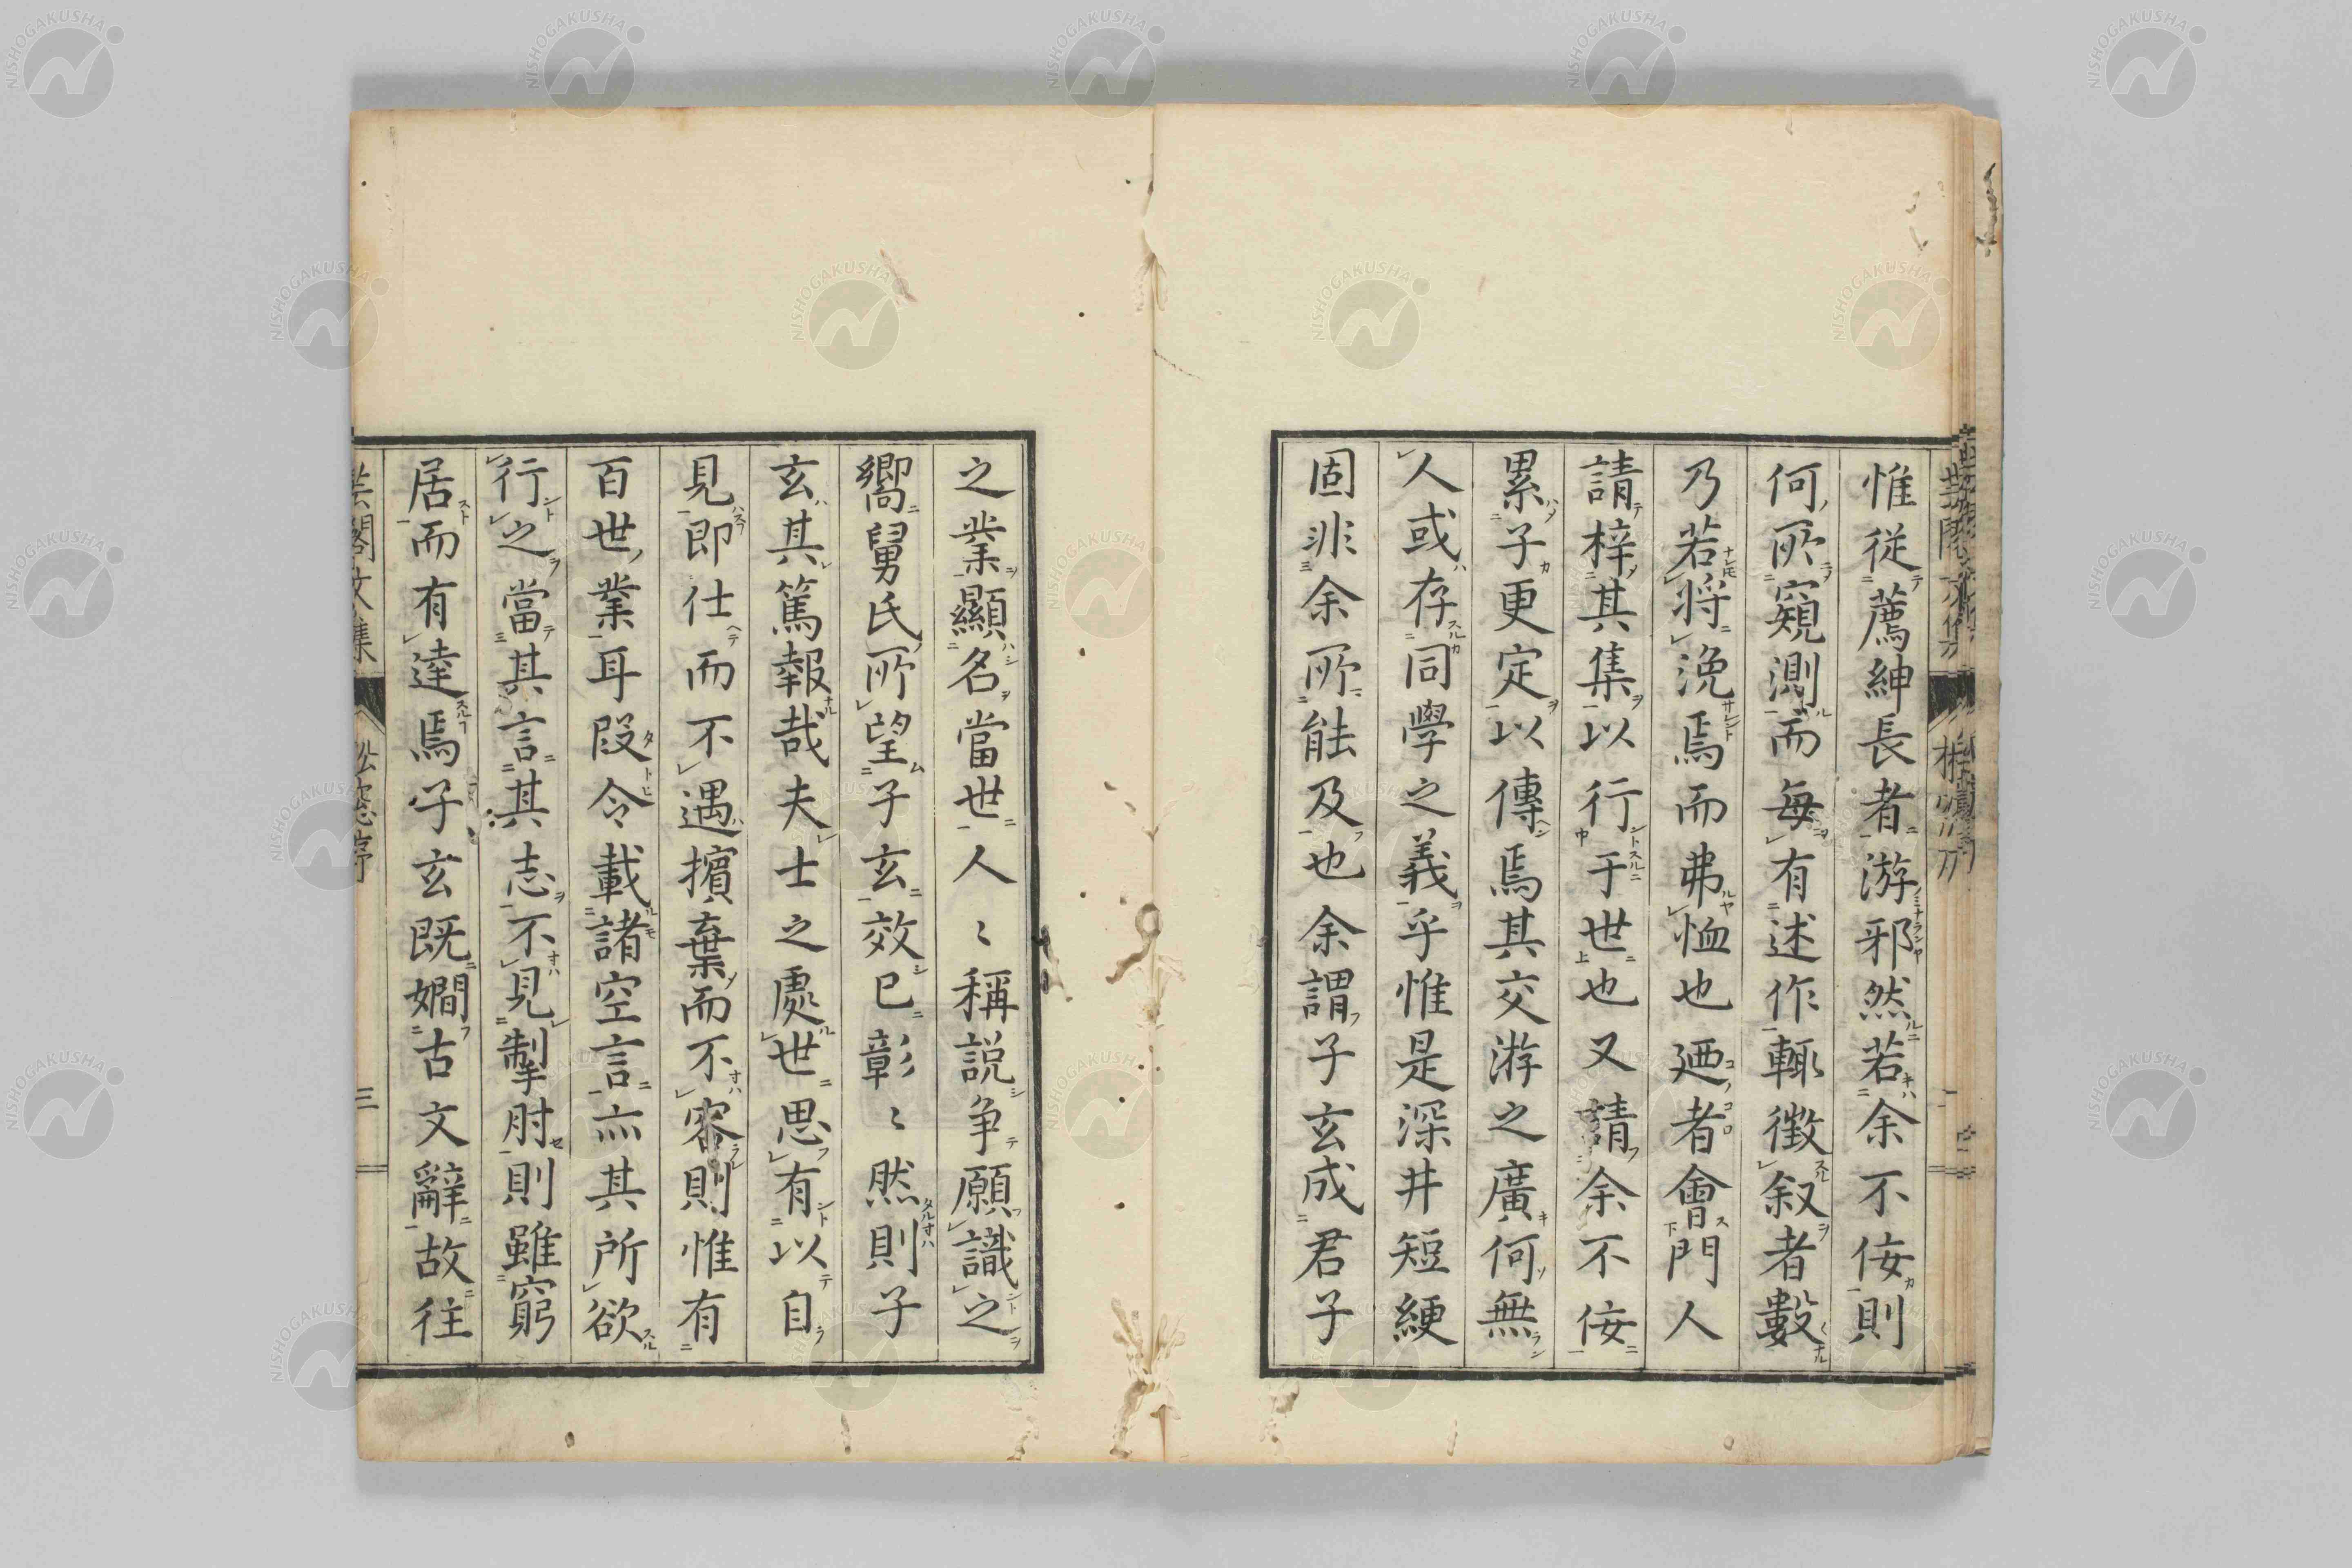 惟從薦紳長者游邪然若余不佞則
何所窺測而每有述作輒徴叙者數
乃若將浼焉而弗恤也廼者會門人
請梓其集以行于世也又請余不佞
累子更定以傳焉其交游之廣何無
人或存同學之義乎惟是深井短綆
固非余所能及也余謂子玄成君子
之業顯名當世人〻稱説争願識之
嚮舅氏所望子玄效已彰〻然則子
玄其篤報哉夫士之處世思有以自
見即仕而不遇擯棄而不審則惟有
百世業耳叚令載諸空言亦其所欲
行之當其言其志不見掣肘則雖窮
居而有達焉子玄既嫺古文辭故往
芸閣文集
松窓序
三
NISHOGAKUSHA